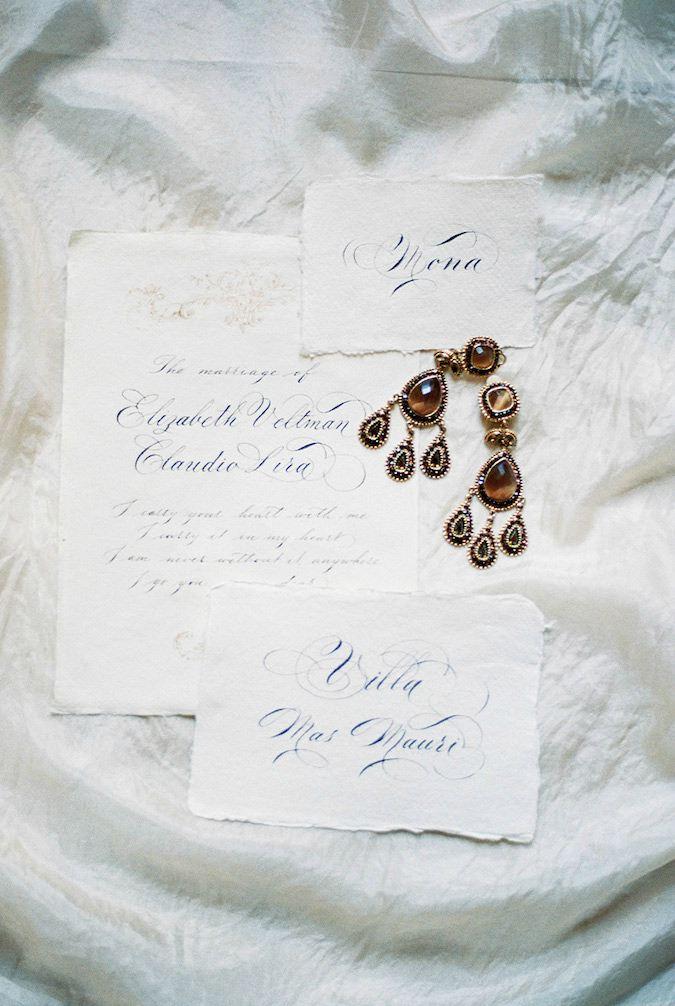 Mona
The marriage of
Elizabeth Veltman
Claudio Lira
I carry your heart with me
I carry it in my heart
I am never without it anywhere
I go you
Villa
Mas Mauri